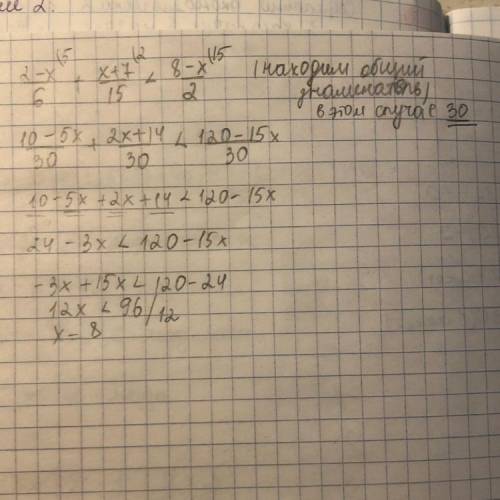 2.
(2-x)/6 \5 + (x+7)/15 \2 < (8-x)/2 \15 (находим общий знаменатель) в этом случае 30
(10-5x)/30 + (2x+14)/30 < (120-15x)/30
10-5x+2x+14<120-15x
24-3x<120-15x
-3x+15x<120-24
12x<96/12
x=8